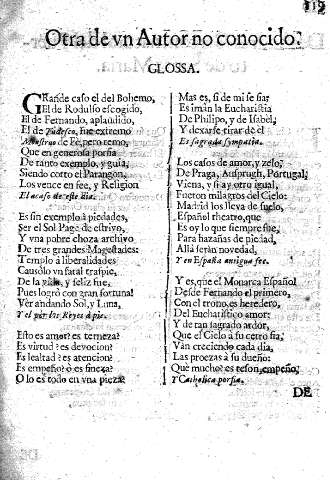 119
Otra de vn Autor no conocido.
GLOSSA.
GRande caso el del Bohemo,
El de Rodulfo escogido,
El de Fernando, aplaudido,
El de Tudesco, fue extremo
Monstruo de Fè, pero temo,
Que en generosa porfia
De tanto exemplo, y guia,
Siendo corto el Parangon,
Los vence en fee, y Religion
El acaso de este dia.
Es sin exemplo à piedades,
Ser el Sol Page de estrivo,
Y vna pobre choza archivo
De tres grandes Magestades:
Templo à liberalidades
Causòlo vn fatal traspie,
De la y feliz fue,
Pues logrò con gran fortuna!
Ver andando Sol, y Luna,
Y el por los Reyes à pie.
Esto es amor? es terneza?
Es virtud? es devocion?
Es lealtad? es atencion?
Es empeño? o es fineza?
O lo es todo en vna pieza?
Mas es, si de mi se fia;
Es iman la Eucharistia
De Philipo, y de Isabel,
Y dexarse tirar de èl
Es sagrada sympatia.
Los casos de amor, y zelo,
De Praga, Ausprugh, Portugal,
Viena, y si ay otro igual,
Fueron milagros del Cielo:
Madrid los lleva de suelo,
Español theatro, que
Es oy lo que siempre fue,
Para hazañas de piedad,
Allà seràn novedad,
Y en España antigua fee.
Y es, que el Monarca Español
Desde Fernando el primero,
Con el trono, es heredero,
Del Eucharistico amor:
Y de tan sagrado ardor,
Que el Cielo à su cetro fia,
Vàn creciendo cada dia,
Las proezas à su dueño:
Que mucho? es teson, empeño,
Y Catholica porfia.
DE